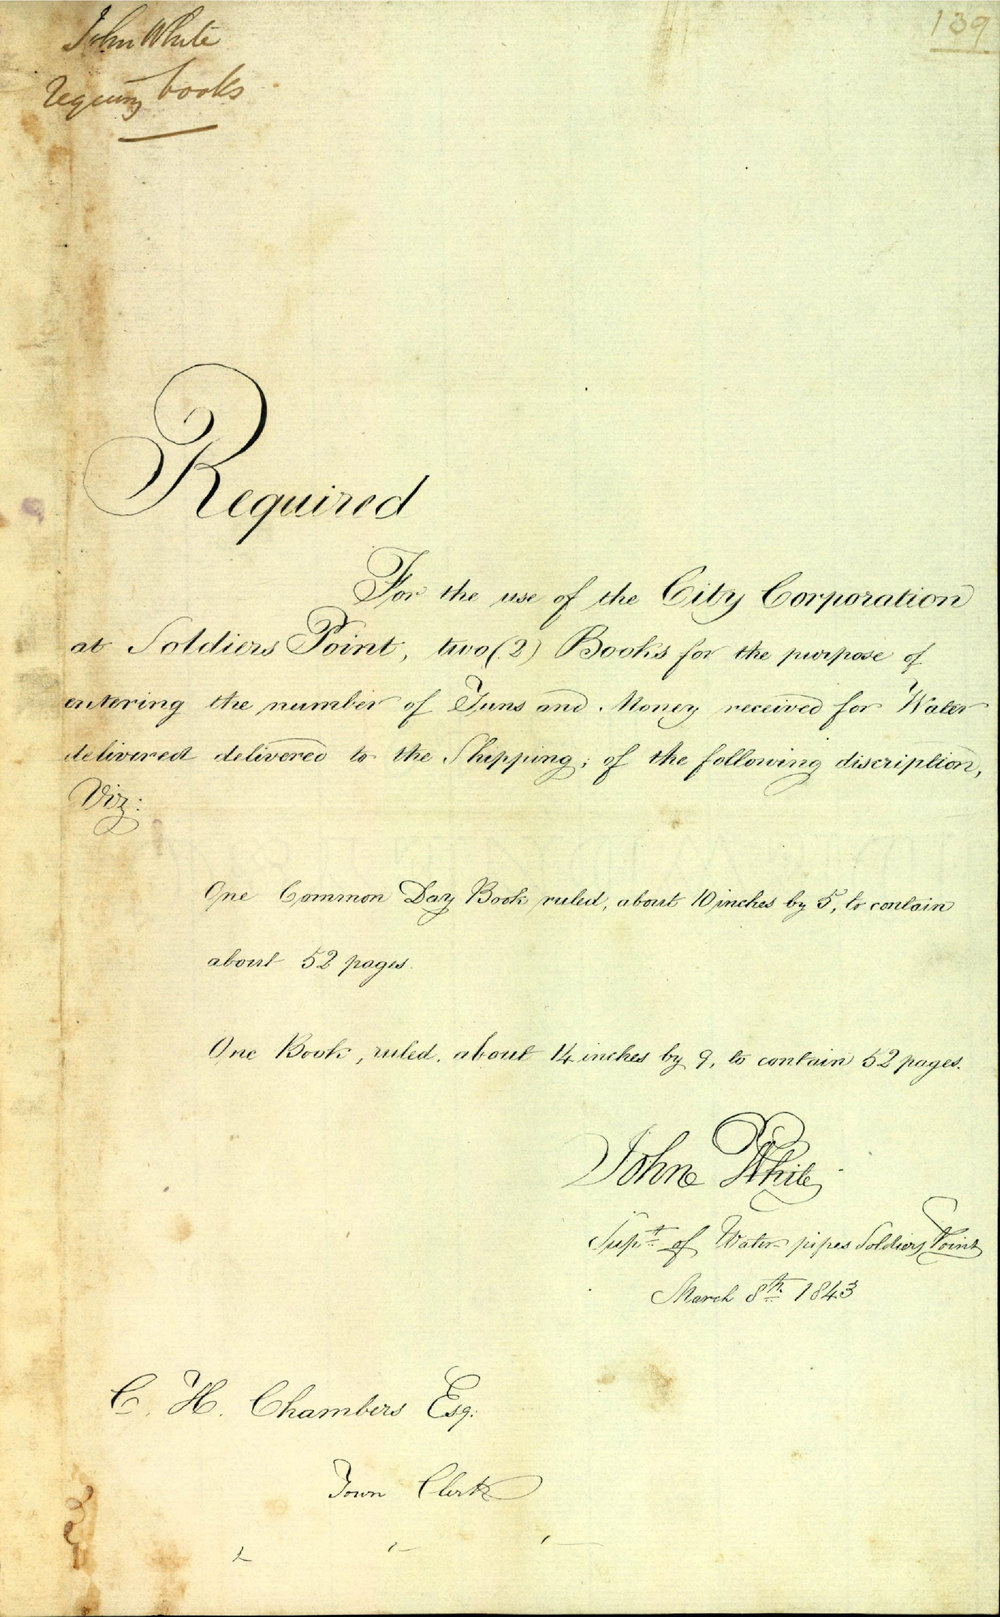 John White
requiring books
139
Required
For the use of the City Corporation
at Soldiers Point, two (2) Books for the purpose of
entering the number of Tuns and Money received for Water
delivered delivered to the Shipping; of the following discription,
Viz:
One Common Day Book ruled, about 10 inches by 5, to contain
about 52 pages.
One Book, ruled, about 14 inches by 9, to contain 52 pages.
John White
Supt. of Water pipes Soldiers Point
March 8th 1843
C. H. Chambers Esq.
Town Clerk